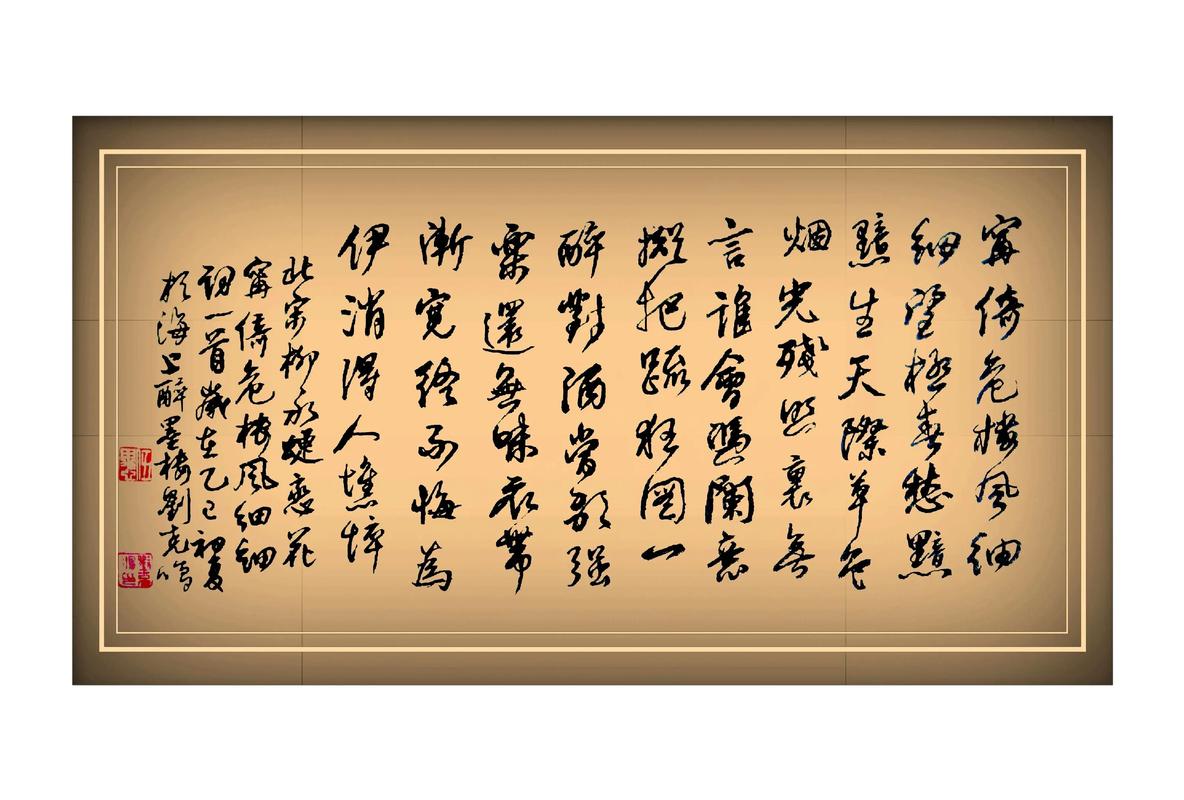 甯倚危樓風細
細望極春愁黯
黯生天際草色
烟光殘照裏無
言誰會憑闌意
擬把疏狂圖一
醉對酒當歌强
樂還無味衣帶
漸寬終不悔為
伊消得人憔悴
北宋柳永蝶戀花
甯倚危樓風細細
詞一首歲在乙巳初夏
於海上醉墨樓劉克鳴